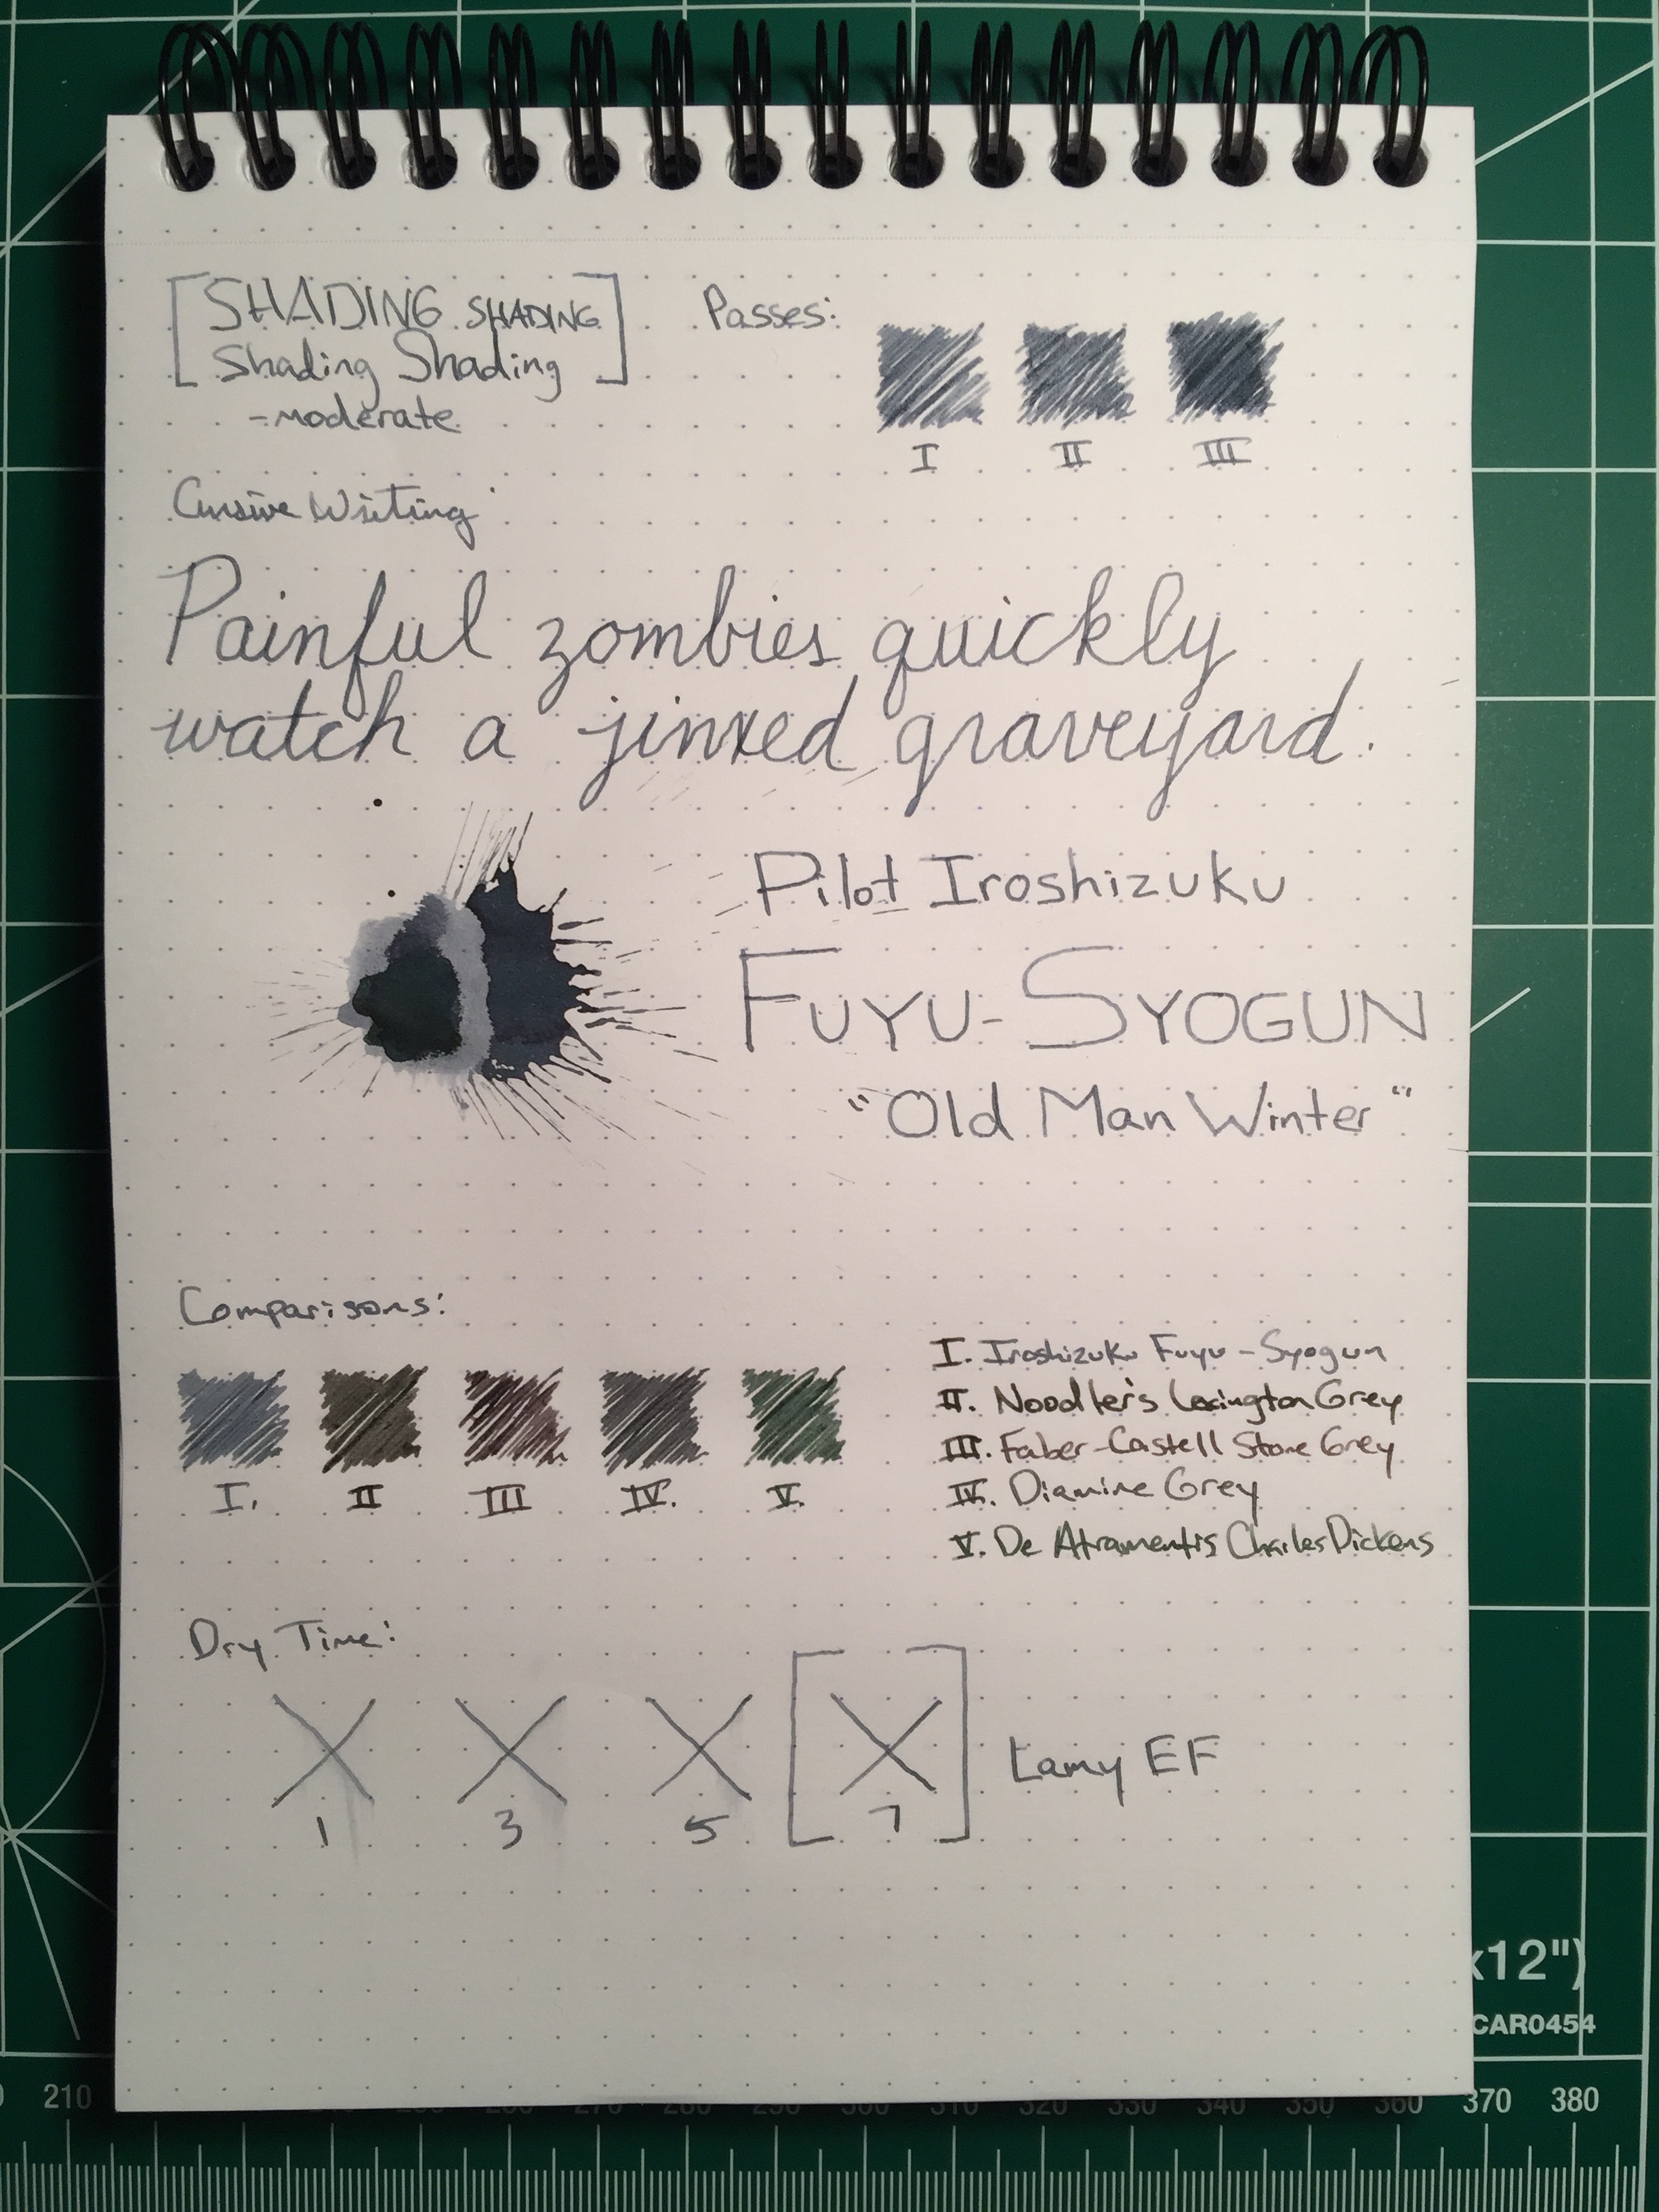 [SHADING SHADING
Shading Shading]
-moderate
Passes:
I II III
Cursive Writing
Painful zombies quickly
watch a jinxed graveyard.
Pilot Iroshizuku
FUYU-SYOGUN
"Old Man Winter"
Comparisons:
I. II III IV. V.
I. Iroshizuku Fuyu-Syogun
II. Noodler's Lexington Grey
III. Faber-Castell Stone Grey
IV. Diamine Grey
V. De Atramentis Charles Dickens
Dry Time:
X X X [X]
1 3 5 7
Lamy EF
x12")
CAR0454
210 260 270 280 290 300 310 320 330 340 350 360 370 380